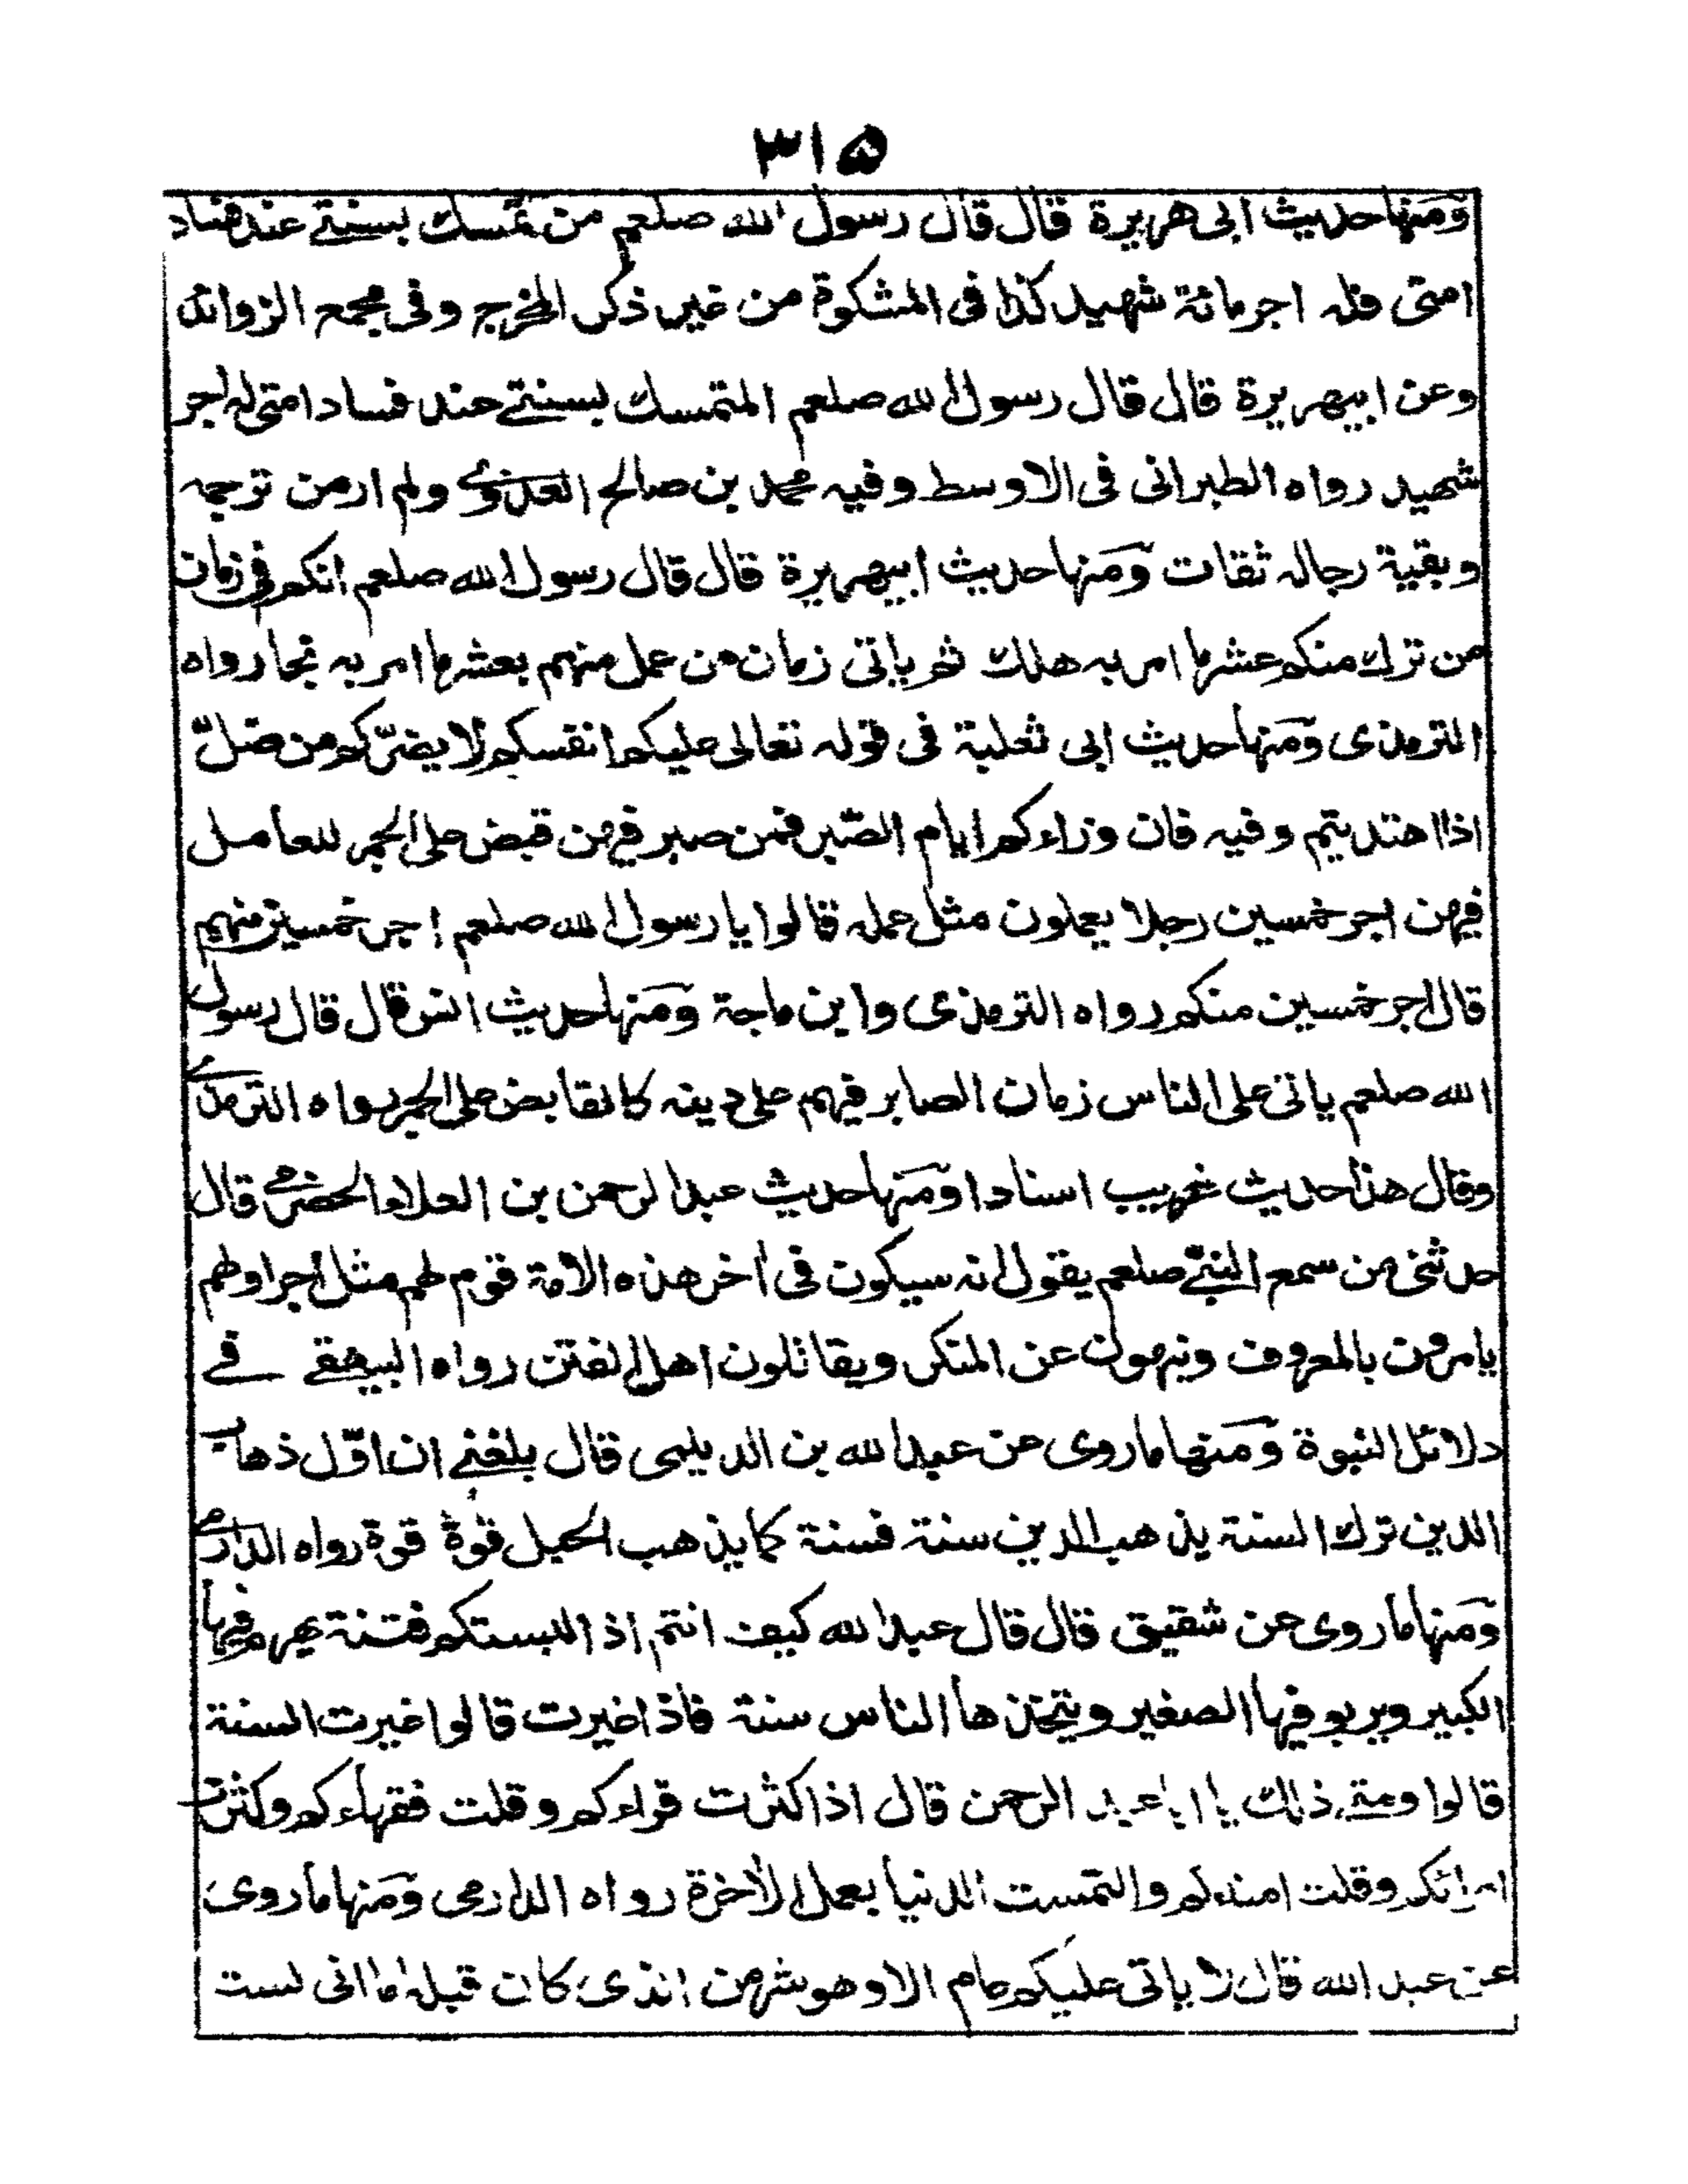 ۳۱۵
ومنها حديث ابى هريرة قال قال رسول الله صلعم من تمسك بسنتے عند فساد
امتى فله اجر مائة شهيد كذا فى المشكوة من غير ذكر المخرج وفى مجمع الزوائد
وعن ابيهريرة قال قال رسول الله صلعم المتمسك بسنتے عند فساد امتى له اجر
شهيد رواه الطبرانى فى الاوسط وفيه محمد بن صالح العدوے ولم ار من ترجمه
وبقية رجاله ثقات ومنها حديث ابيهريرة قال قال رسول الله صلعم انكم فى زمان
من ترك منكم عشر ما امر به هلك ثم ياتى زمان من عمل منهم بعشر ما امر به نجا رواه
الترمذى ومنها حديث ابى ثعلبة فى قوله تعالى عليكم انفسكم لا يضرّكم من ضلّ
اذا اهتديتم وفيه فان وراءكم ايام الصّبر فمن صبر فيهن قبض على الجمر للعامل
فيهن اجر خمسين رجلا يعملون مثل عمله قالوا يا رسول الله صلعم اجر خمسين منهم
قال اجر خمسين منكم رواه الترمذى وابن ماجة ومنها حديث انس قال قال رسول
الله صلعم ياتى على الناس زمان الصابر فيهم على دينه كالقابض على الجمر رواه الترمذے
وقال هذا حديث غريب اسنادا ومنها حديث عبد الرحمن بن العلاء الحضرمے قال
حدثنى من سمع النبىّے صلعم يقول انه سيكون فى اخر هذه الامة قوم لهم مثل اجر اولهم
يامرون بالمعروف وينهون عن المنكر ويقاتلون اهل الفتن رواه البيهقے فے
دلائل النبوة ومنها ما روى عن عبد الله بن الديلمى قال بلغنے ان اوّل ذهاب
الدين ترك السنة يذهب الدين سنة فسنة كما يذهب الحبل قوة قوة رواه الدارمے
ومنها ما روى عن شقيق قال قال عبد الله كيف انتم اذا البستكم فتنة يهرم فيها
الكبير ويربو فيها الصغير ويتخذها الناس سنة فاذا غيرت قالوا غيرت السنة
قالوا ومتے ذلك يا ابا عبد الرحمن قال اذا كثرت قراءكم وقلت فقهاءكم وكثرت
امرائكم وقلت امناءكم والتمست الدنيا بعمل الاخرة رواه الدارمى ومنها ما روى
عن عبد الله قال لا ياتى عليكم عام الا وهو شر من الذى كان قبله اما انى لست